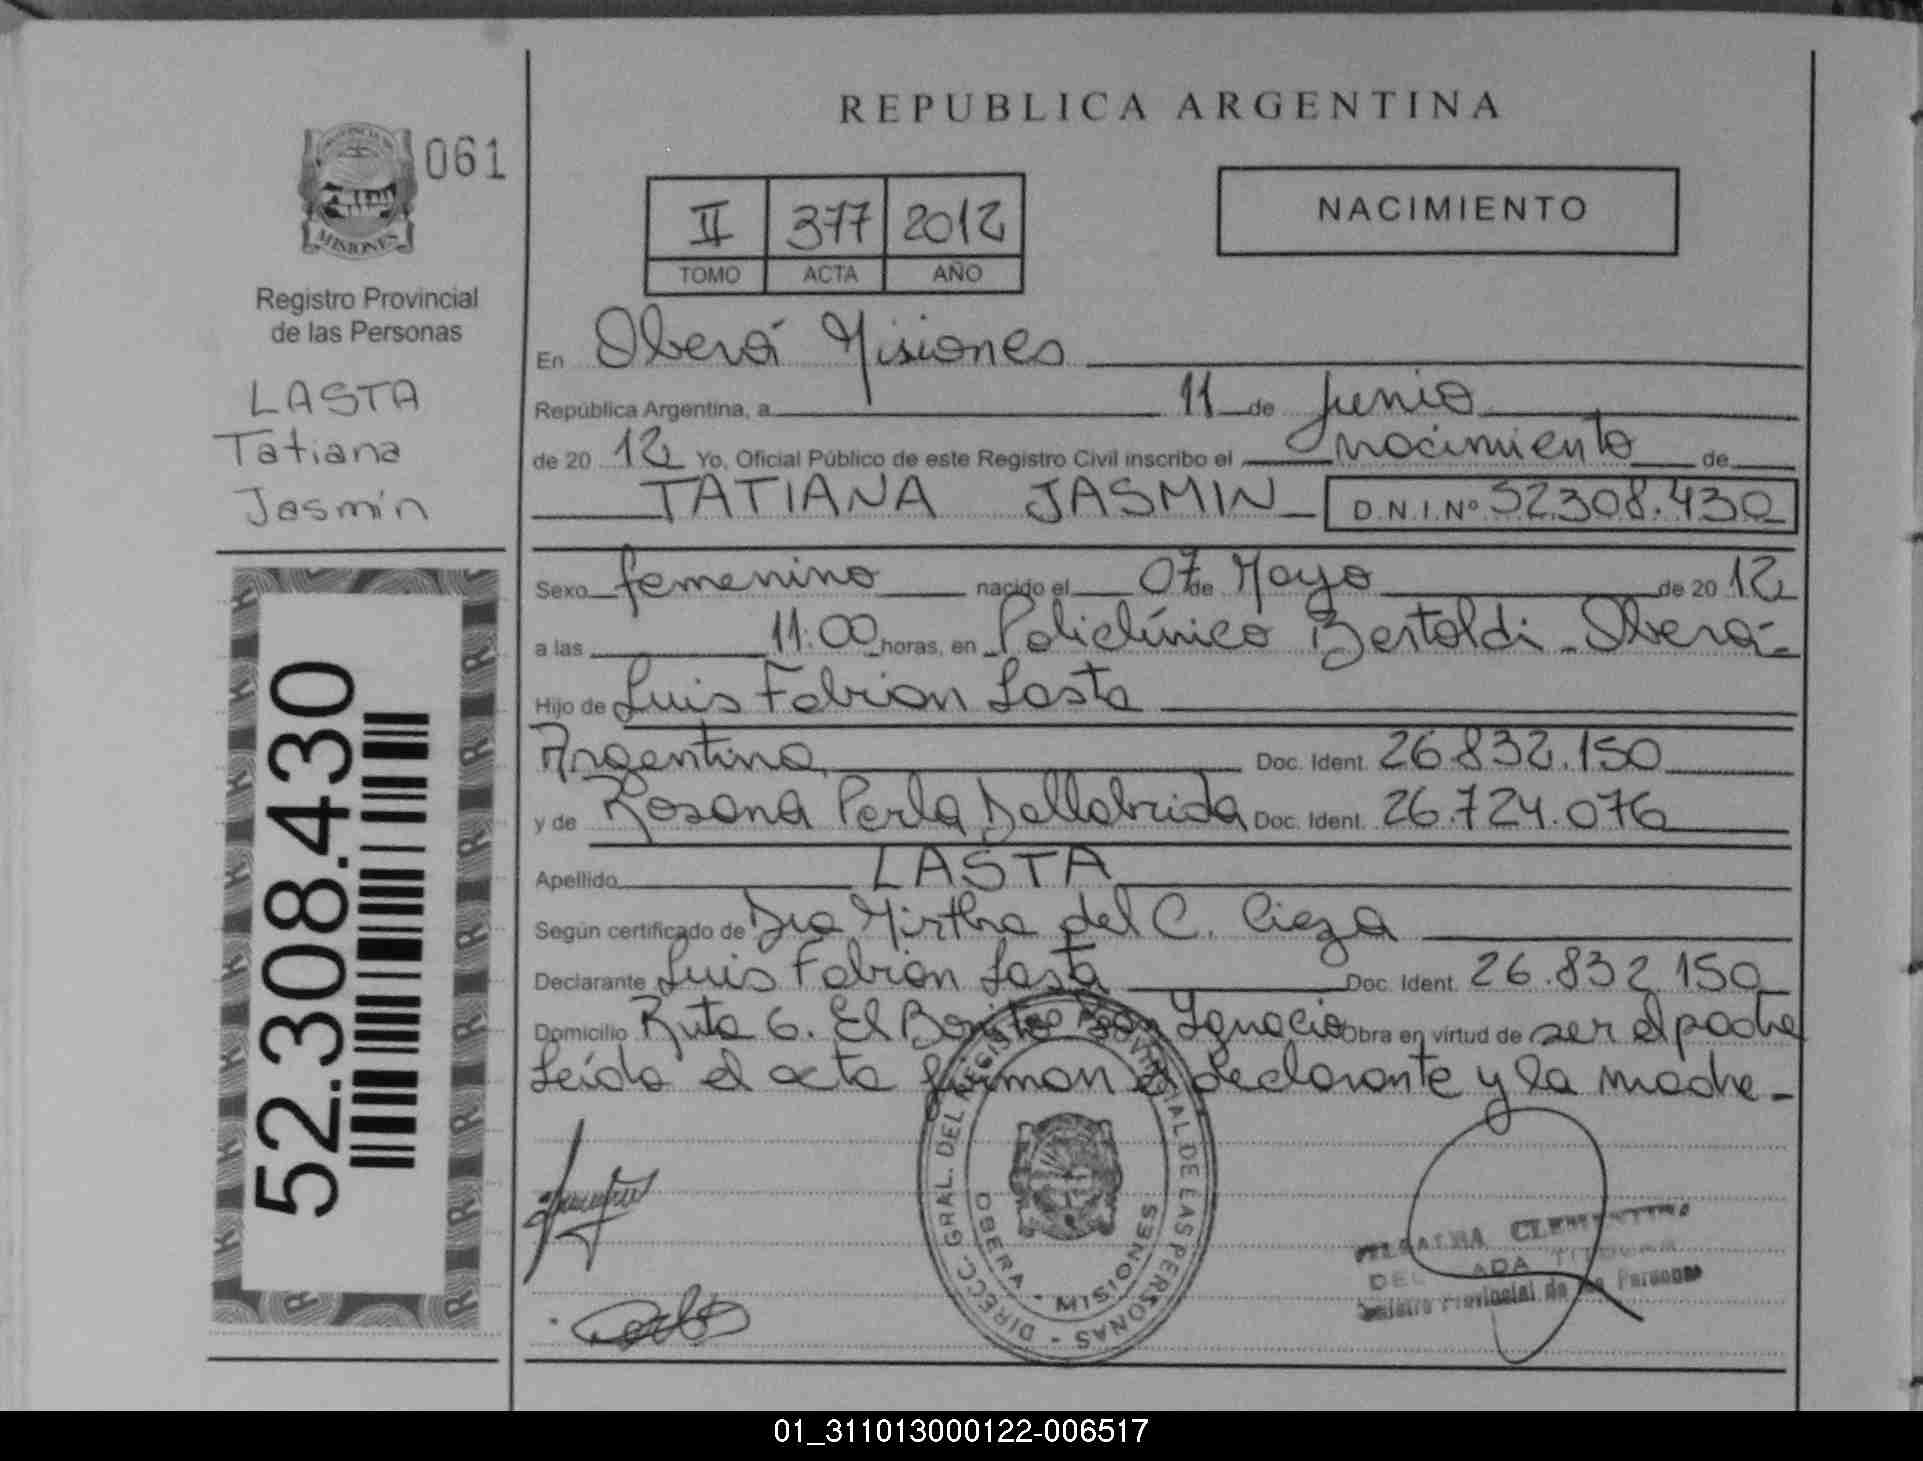 REPUBLICA ARGENTINA
PROVINCIA DE
MISIONES
061
Registro Provincial
de las Personas
LASTA
Tatiana
Jasmín
52.308.430
II 377 2012
TOMO ACTA AÑO
NACIMIENTO
En Oberá Misiones
República Argentina, a 11 de Junio
de 20 12 Yo, Oficial Público de este Registro Civil inscribo el nacimiento de
TATIANA JASMIN D.N.I.Nº 52.308.430
Sexo femenino nacido el 07 de Mayo de 20 12
a las 11:00 horas, en Policlínico Bertoldi - Oberá-
Hijo de Luis Fabian Lasta
Argentina Doc. Ident. 26.832.150
y de Rosana Perla Dellabrida Doc. Ident. 26.724.076
Apellido LASTA
Según certificado de Dra Mirtha del C. Cieza
Declarante Luis Fabian Lasta Doc. Ident. 26.832.150
Domicilio Ruta 6. El Bonito San Ignacio Obra en virtud de ser el padre
Leída el acta firman el declarante y la madre-
DIRECC. GRAL. DEL REGISTRO PROVINCIAL DE LAS PERSONAS -
OBERA - MISIONES
CLEMENTINA
TITULAR
Registro Provincial de las Personas
01_311013000122-006517